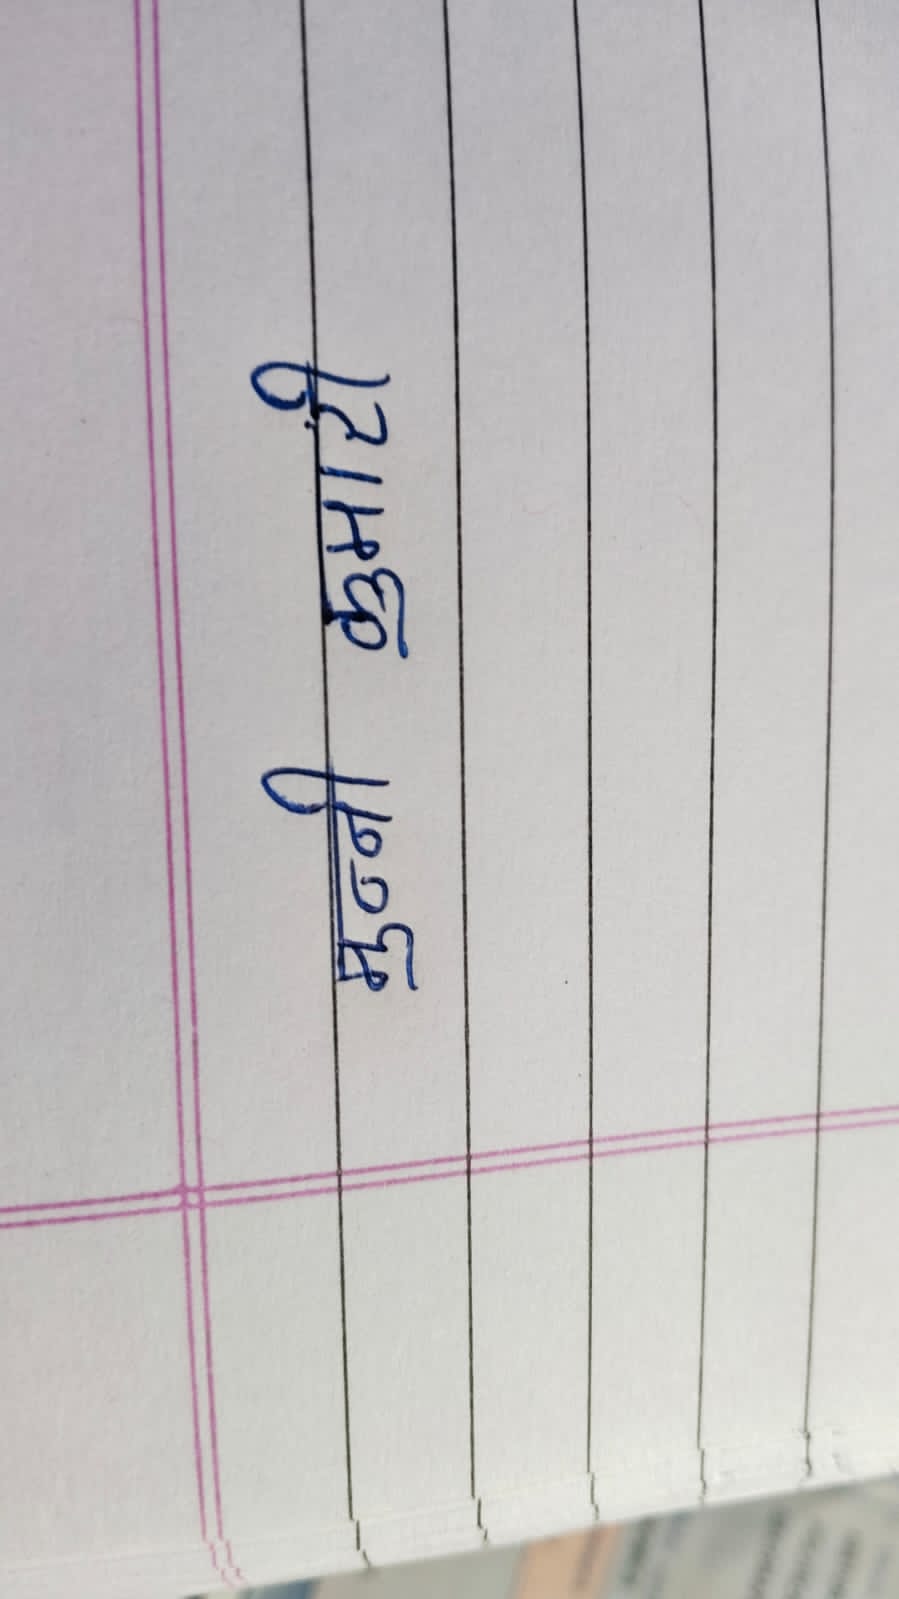 मुन्नी कुमारी